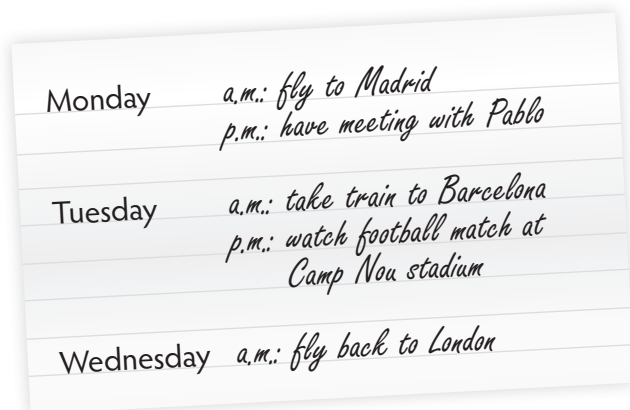 Monday a.m.: fly to Madrid
p.m.: have meeting with Pablo
Tuesday a.m.: take train to Barcelona
p.m.: watch football match at
Camp Nou stadium
Wednesday a.m.: fly back to London